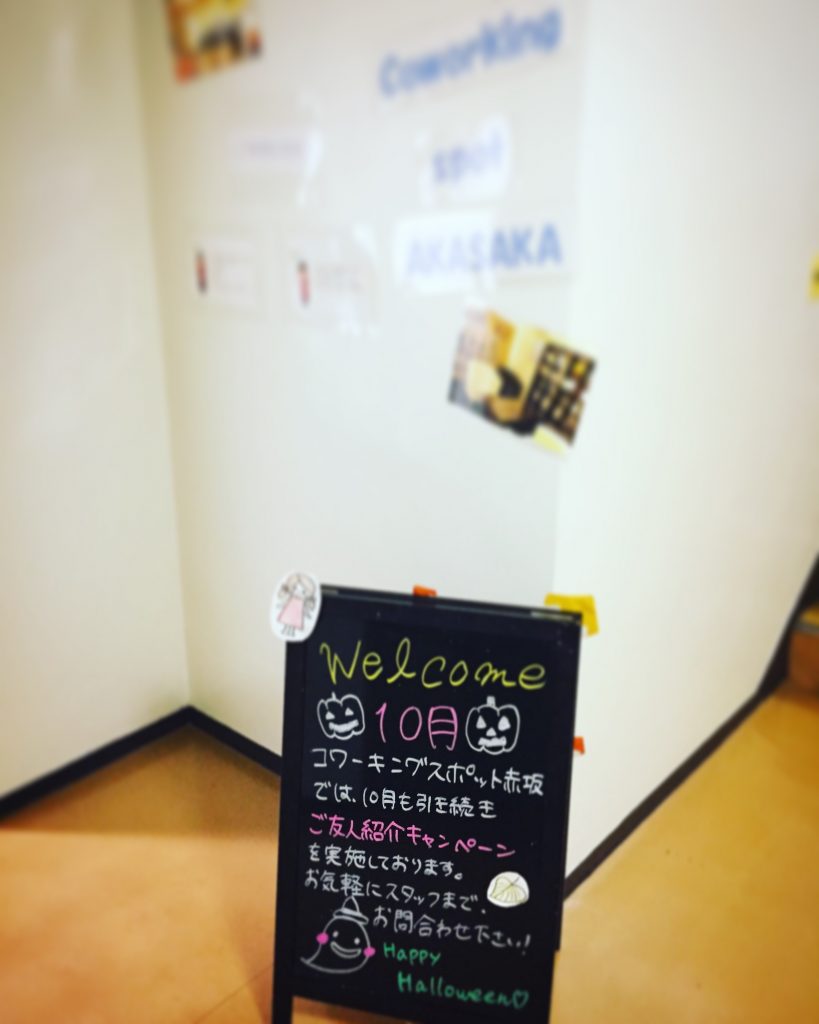 Coworking
spot
AKASAKA
Welcome
10月
コワーキングスポット赤坂
では、10月も引き続き
ご友人紹介キャンペーン
を実施しております。
お気軽にスタッフまで、
お問合わせ下さい!
Happy
Halloween♡